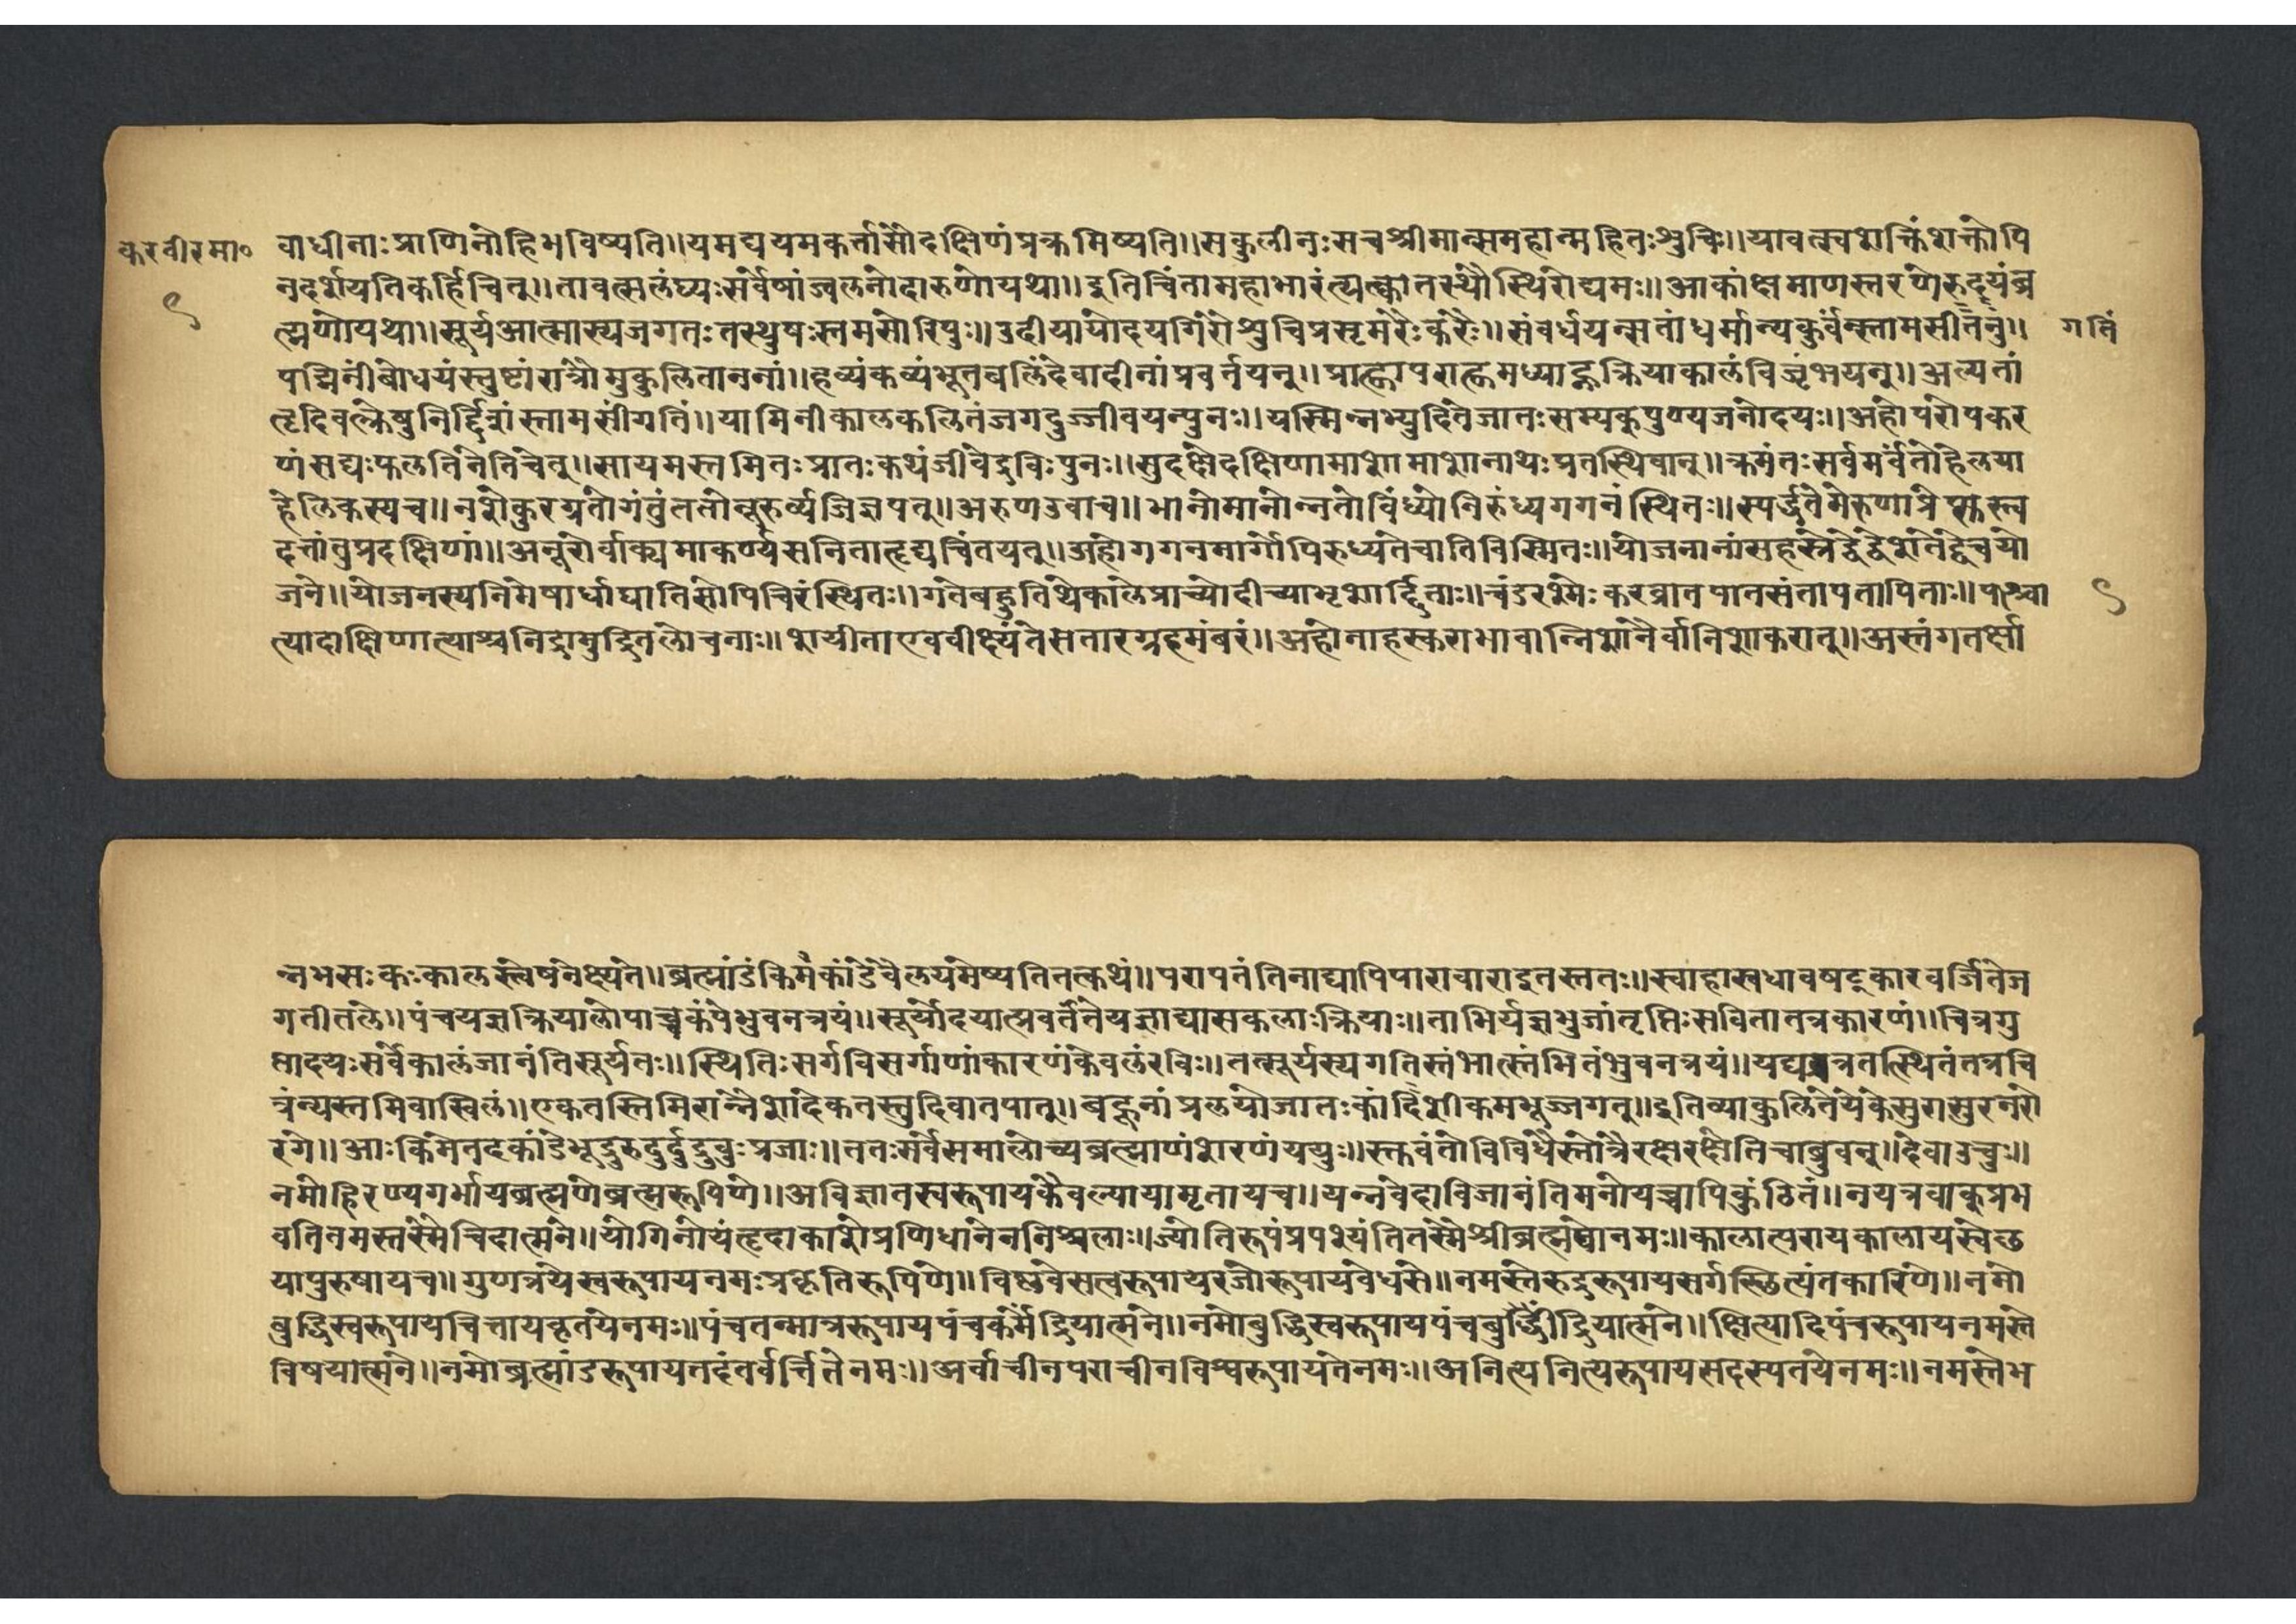 करवीरमा०
९
वाधीनाःप्राणिनोहिभविष्यति॥यमद्ययमकर्त्तासौदक्षिणंप्रक्रमिष्यति॥सकुलीनःसचश्रीमान्समहान्महितःशुचिः॥यावत्स्वशक्तिंशक्तोपि
नदर्शयतिकर्हिचित्॥तावत्सलंघ्यःसर्वेषांज्वलनोदारुणोयथा॥इतिचिंतामहाभारंत्यक्त्वातस्थौस्थिरोद्यमः॥आकांक्षमाणस्तरणेरुदयंब्र
ह्मणोयथा॥सूर्यआत्मास्यजगतःतस्थुषःस्तमसोरिपुः॥उदीयायोदयगिरौशुचिप्रसृमरैःकरैः॥संवर्धयन्सतांधर्मान्यकुर्वन्स्तामसींतनु॥
गतिं
पद्मिनींबोधयंस्तुष्टांरात्रौमुकुलिताननां॥हव्यंकव्यंभूतबलिंदेवादीनांप्रवर्त्तयन्॥प्राह्णापराह्णमध्याह्नक्रियाकालंविजृंभयन्॥असतां
हृदिवत्क्रेषुनिर्द्दिशंस्तामसींगतिं॥यामिनीकालकलितंजगदुज्जीवयन्पुनः॥यस्मिन्नभ्युदितेजातःसम्यक्पुण्यजनोदयः॥अहोपरोपकर
णंसद्यःफलतिनेतिचेत्॥सायमस्तमितःप्रातःकथंजीवेद्रविःपुनः॥सुदक्षोदक्षिणामाशामाशानाथःप्रतस्थिवान्॥क्रमंतःसर्वमर्वंतोहेलया
हेलिकस्यच॥नशेकुरग्रतोगंतुंततोनूरुर्व्यजिज्ञपत्॥अरुणउवाच॥भानोमानोन्नतोविंध्योनिरुंध्यगगनंस्थितः॥स्पर्द्धतेमेरुणाप्रेप्सुस्त्व
दत्तांतुप्रदक्षिणां॥अनूरोर्वाक्यमाकर्ण्यसविताहृद्यचिंतयत्॥अहोगगनमार्गोपिरुध्यतेचातिविस्मितः॥योजनानांसहस्रेद्वेद्वेशतेद्वेचयो
जने॥योजनस्यनिमेषार्धाद्यातिसोपिचिरंस्थितः॥गतेबहुतिथेकालेप्राच्योदीच्याभृशार्द्दिताः॥चंडरश्मेःकरव्रातपातसंतापतापिताः॥पाश्चा
९
त्यादाक्षिणात्याश्चनिद्रामुद्रितलोचनाः॥शयीताएववीक्ष्यंतेसतारग्रहमंबरं॥अहोनाहस्कराभावान्निशानैर्वानिशाकरात्॥अस्तंगतर्क्षो
न्नभसःकःकालस्त्वेषनेक्ष्यते॥ब्रह्मांडंकिमकांडेवैलयमेष्यतितत्कथं॥परापतंतिनाद्यापिपारावाराइतस्ततः॥स्वाहास्वधावषट्कारवर्जितेज
गतीतले॥पंचयज्ञक्रियालोपाच्चकंपेभुवनत्रयं॥सूर्योदयात्प्रवर्तंतेयज्ञाद्यासकलाःक्रियाः॥ताभिर्यज्ञभुजांतृप्तिःसवितातत्रकारणं॥चित्रगु
प्तादयःसर्वेकालंजानंतिसूर्यतः॥स्थितिःसर्गविसर्गाणांकारणंकेवलंरविः॥तत्सूर्यस्यगतिस्तंभात्स्तंभितंभुवनत्रयं॥यद्यत्रतत्स्थितंतत्रचि
त्रंन्यस्तमिवाखिलं॥एकतस्तिमिरान्नैशादेकतस्तुदिवातपात्॥बहूनांप्रलयोजातःकांदिशीकमभूज्जगत्॥इतिव्याकुलितेयेकेसुरासुरनरो
रगे॥आःकिमेतदकांडेभूद्रुरुदुर्दुद्रुवुःप्रजाः॥ततःसर्वेसमालोच्यब्रह्माणंशरणंययुः॥स्तुवंतोविविधैस्तोत्रैरक्षरक्षेतिचाब्रुवन्॥देवाउचुः॥
नमोहिरण्यगर्भायब्रह्मणेब्रह्मरूपिणे॥अविज्ञातस्वरूपायकैवल्यायामृतायच॥यन्नवेदाविजानंतिमनोयत्रापिकुंठितं॥नयत्रवाक्प्रभ
वतिनमस्तस्मैचिदात्मने॥योगिनोयंहृदाकाशेप्रणिधानेननिश्चलाः॥ज्योतिरूपंप्रपश्यंतितस्मैश्रीब्रह्मणेनमः॥कालात्परायकालायस्वेछ
यापुरुषायच॥गुणत्रयेस्वरूपायनमःप्रकृतिरूपिणे॥विष्णवेसत्वरूपायरजोरूपायवेधसे॥नमस्तेरुद्ररूपायसर्गस्छित्यंतकारिणे॥नमो
बुद्धिस्वरूपायचित्तायवृतयेनमः॥पंचतन्मात्ररूपायपंचकर्मेंद्रियात्मने॥नमोबुद्धिस्वरूपायपंचबुद्धींद्रियात्मने॥क्षित्यादिपंचरूपायनमस्ते
विषयात्मने॥नमोब्रह्मांडरूपायतदंतर्वर्त्तितेनमः॥अर्वाचीनपराचीनविश्वरूपायतेनमः॥अनित्यनित्यरूपायसदस्पतयेनमः॥नमस्तेभ